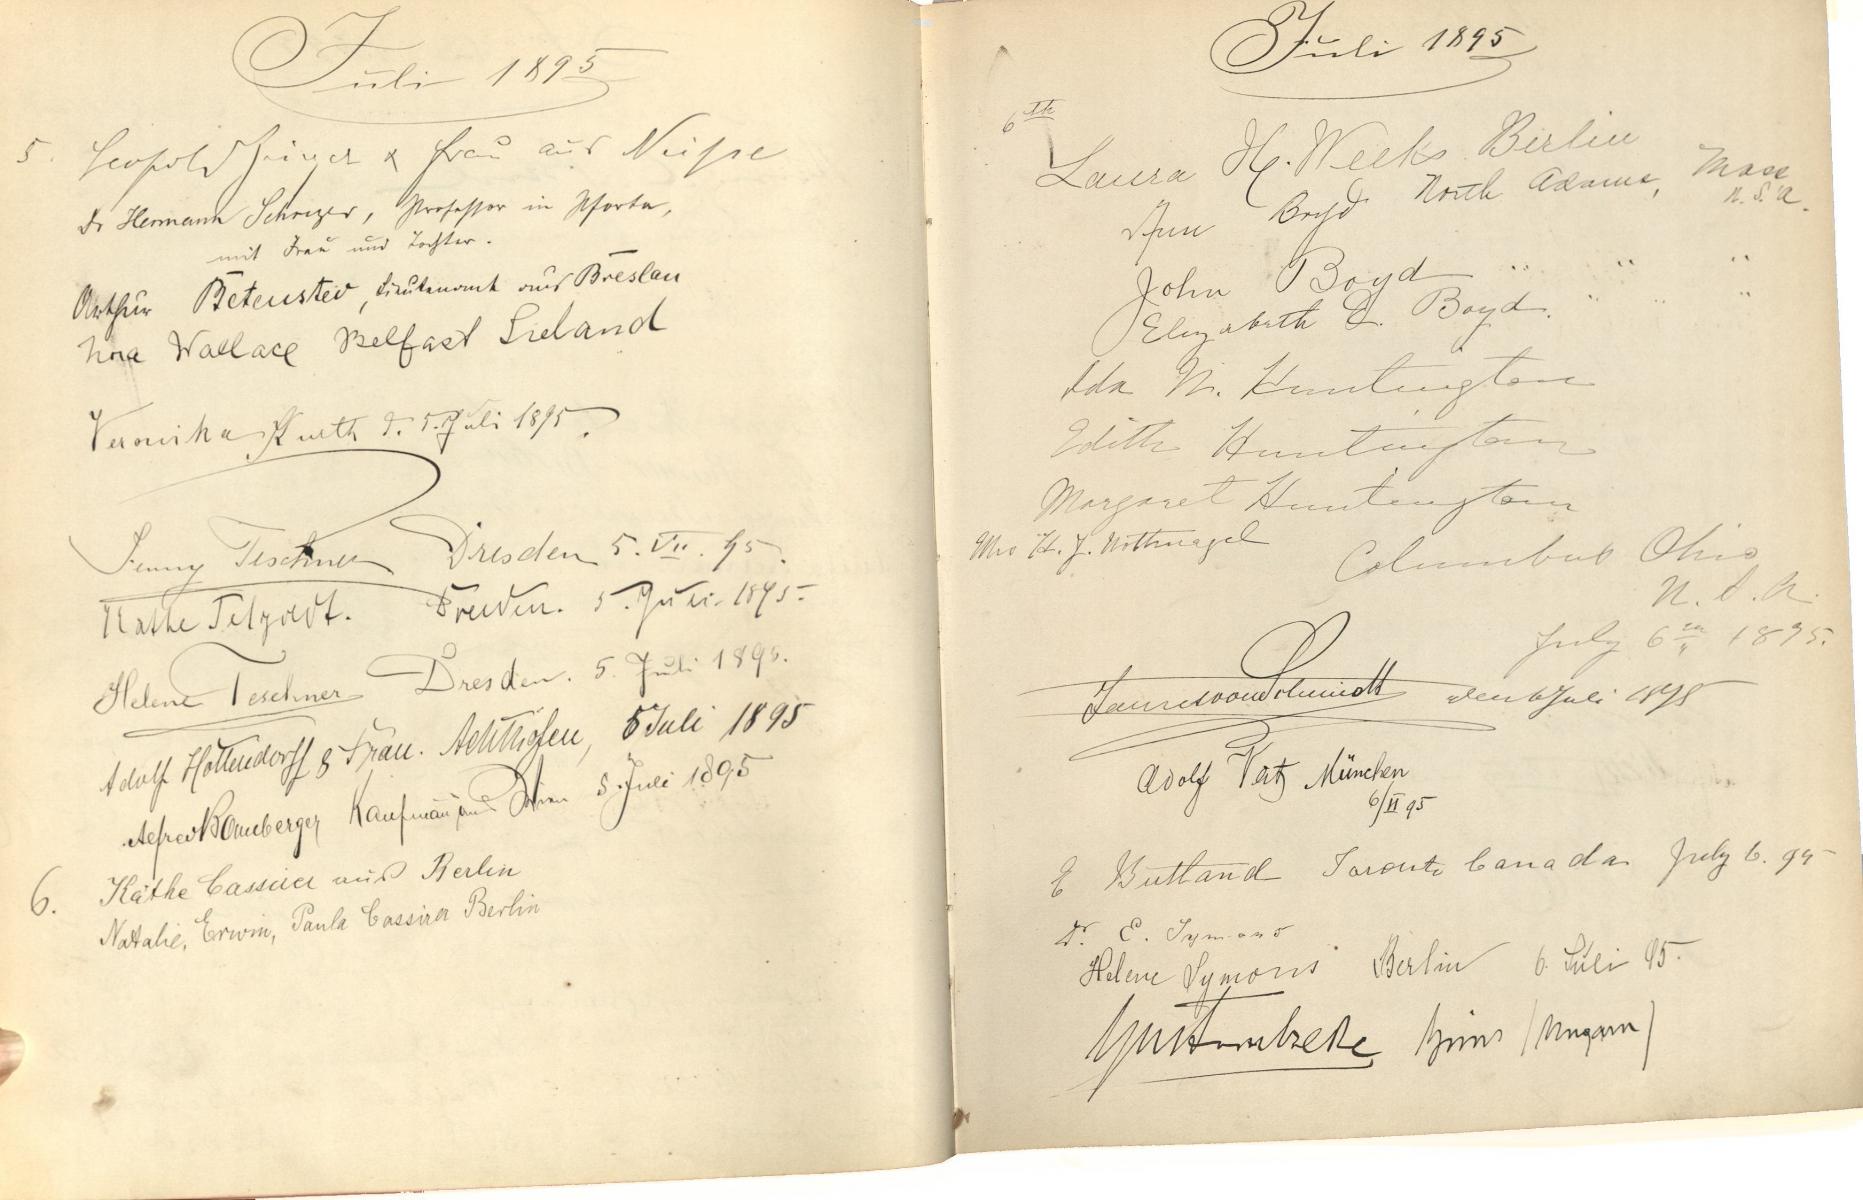 Juli 1895
5. Leopold & Frau aus Neisse
Dr Hermann Schreyer, Professor in Pforta,
mit Frau und Tochter.
Arthur Lieutenant aus Breslau
Nora Wallace Belfast Ireland
Veronika Kurth d. 5. Juli 1895.
Jenny Teschner Dresden 5. VII. 95.
Käthe Dresden. 5. Juli. 1895.
Helene Teschner Dresden. 5. Juli 1895.
Adolf Hottendorff & Frau. 5 Juli 1895
Alfred Bamberger Kaufmann aus Wien 5. Juli 1895
6. Käthe Cassirer aus Berlin
Natalie, Erwin, Paula Cassirer Berlin
Juli 1895
6th
Laura H. Weeks Berlin
Ann Boyd North Adams, Mass
U.S.A.
John Boyd " " "
Elizabeth D. Boyd. " " "
Ida M. Huntington
Edith Huntington
Margaret Huntington
Mrs H. J. Nothnagel
Columbus Ohio
U.S.A.
July 6th 1895.
Schmidt den 6 Juli 1895
Adolf München
6/VI 95
E Butland Toronto Canada July 6. 95
Dr. E. Symons
Helene Symons Berlin 6. Juli 95.
(Ungarn)